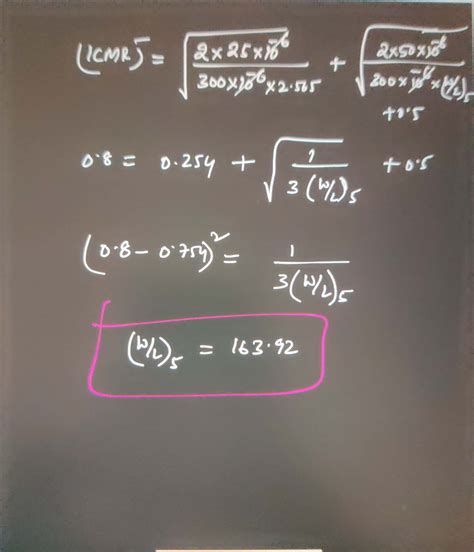 (ICMR)⁻ = √(2 × 25 × 10⁻⁶ / 300 × 10⁻⁶ × 2.565) + √(2 × 50 × 10⁻⁶ / 300 × 10⁻⁶ × (W/L)₅)
+0.5
0.8 = 0.254 + √(1 / 3 (W/L)₅) + 0.5
(0.8 – 0.754)² = 1 / 3(W/L)₅
(W/L)₅ = 163.92